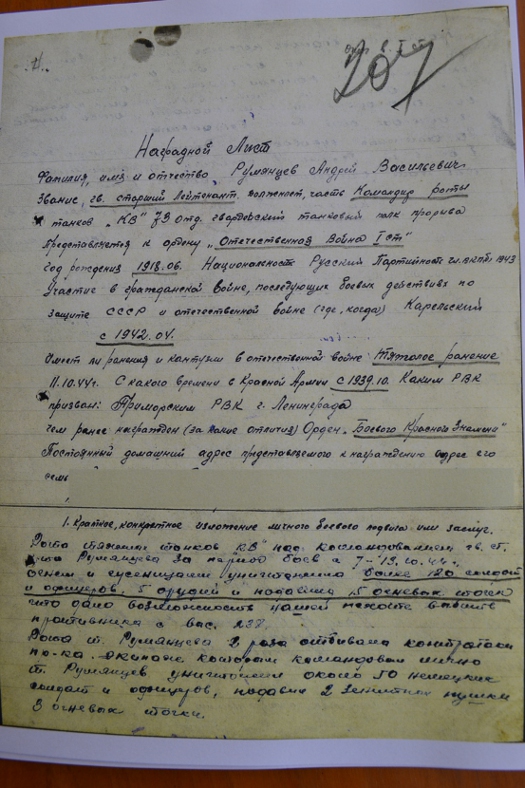 207
Наградной Лист
Фамилия, имя и отчество Румянцев Андрей Васильевич
Звание, гв. старший Лейтенант должност, часть Командир роты
танков „КВ" 73 отд. гвардейский танковый полк прорыва
представляется к ордену „Отечественной Война I ст"
год рождения 1918.06. Национальность Русский Партийность чл. ВКПб 1943
Участие в гражданской войне, последующих боевых действиях по
защите СССР и отечественной войне (где, когда) Карельский
с 1942.04.
Имеет ли ранения и контузии в отечественной войне Тяжолое ранение
11.10.44г. С какого времени в Красной Армии с 1939.10. Каким РВК
призван: Приморским РВК г. Ленинграда
чем ранее награжден (за какие отличия) Орден „Боевого Красного Знамени"
Постоянный домашний адрес представляемого к награждению адрес его
семь
1. Краткое, конкретное изложение личного боевого подвига или заслуг.
Рота тяжолых танков КВ" под командованием гв. ст.
л-та Румянцева за период боев с 7-13.10.44г.
огнем и гусеницами уничтожила более 120 солдат
и офицеров, 5 орудий и подавила 15 огневых точек
что дало возможность нашей пехоте выбить
противника с выс. 237.
Рота т. Румянцева 2 раза отбивала контратаки
пр-ка. Экипаж которым командовал лично
т. Румянцев уничтожил около 50 немецких
солдат и офицеров, подавил 2 зенитных пушки
3 огневых точки.